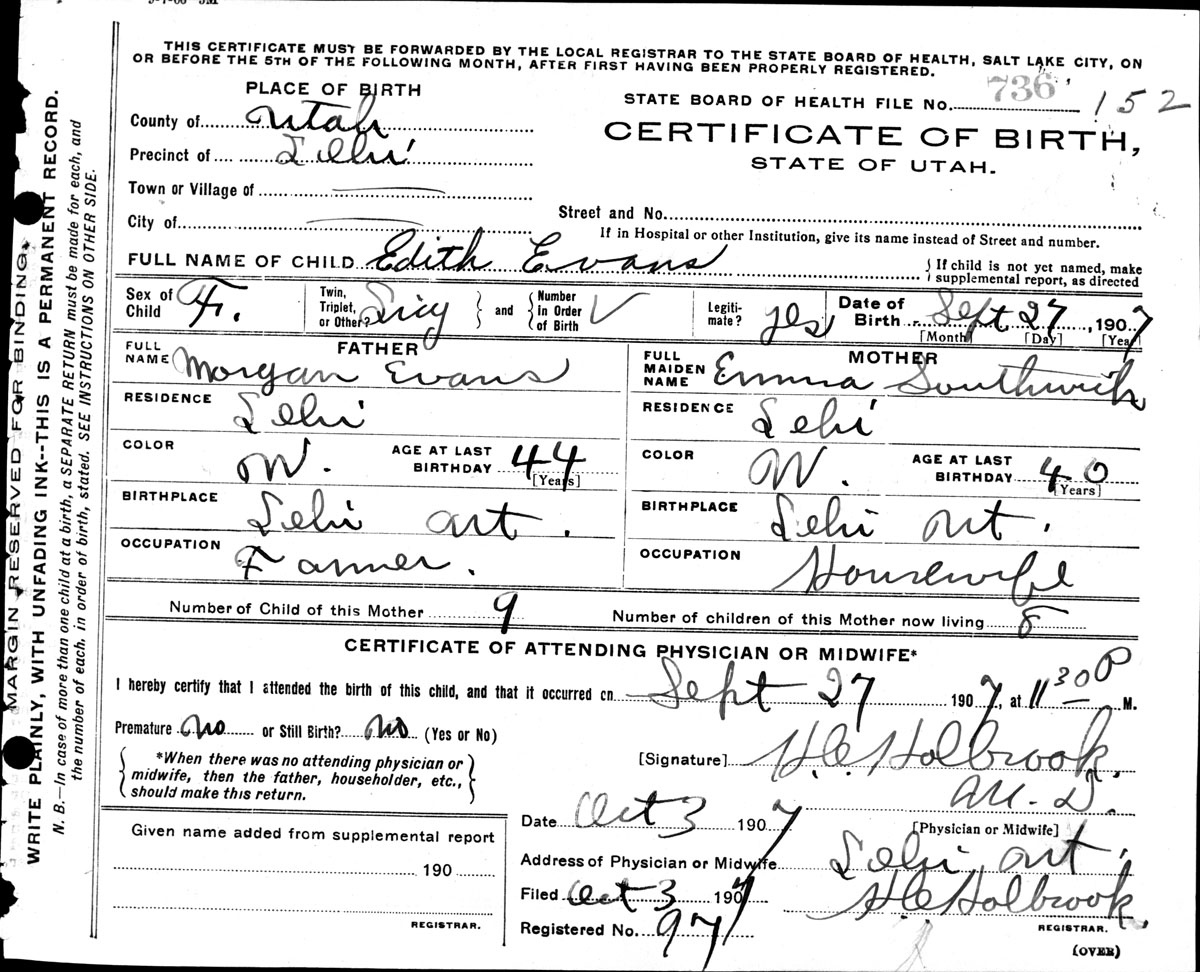 THIS CERTIFICATE MUST BE FORWARDED BY THE LOCAL REGISTRAR TO THE STATE BOARD OF HEALTH, SALT LAKE CITY, ON
OR BEFORE THE 5TH OF THE FOLLOWING MONTH, AFTER FIRST HAVING BEEN PROPERLY REGISTERED.
PLACE OF BIRTH
STATE BOARD OF HEALTH FILE No. 736 152
County of Utah
CERTIFICATE OF BIRTH,
Precinct of Lehi
STATE OF UTAH.
Town or Village of
City of
Street and No.
If in Hospital or other Institution, give its name instead of Street and number.
FULL NAME OF CHILD Edith Evans
{If child is not yet named, make
supplemental report, as directed
Sex of Child F.
Twin, Triplet, or Other?
and
Number In Order of Birth
Legiti-mate? yes
Date of Birth Sept 27, 1907
[Month] [Day] [Year]
FATHER
FULL NAME Morgan Evans
RESIDENCE Lehi
COLOR W.
AGE AT LAST BIRTHDAY 44
[Years]
BIRTHPLACE Lehi Ut.
OCCUPATION Farmer.
MOTHER
FULL MAIDEN NAME Emma Southwick
RESIDENCE Lehi
COLOR W.
AGE AT LAST BIRTHDAY 40
[Years]
BIRTHPLACE Lehi Ut.
OCCUPATION Housewife
Number of Child of this Mother 9
Number of children of this Mother now living 8
CERTIFICATE OF ATTENDING PHYSICIAN OR MIDWIFE*
I hereby certify that I attended the birth of this child, and that it occurred on Sept 27 1907, at 11 30 P M.
Premature No or Still Birth? No (Yes or No)
{*When there was no attending physician or
midwife, then the father, householder, etc.,
should make this return.}
[Signature] H.C. Holbrook.
M.D.
[Physician or Midwife]
Date Oct 3 1907
Address of Physician or Midwife Lehi, Ut.
Filed Oct 3 1907 H.C. Holbrook.
REGISTRAR.
Registered No. 97
(OVER)
Given name added from supplemental report
190
REGISTRAR.
MARGIN RESERVED FOR BINDING.
WRITE PLAINLY, WITH UNFADING INK--THIS IS A PERMANENT RECORD.
N. B.—In case of more than one child at a birth, a SEPARATE RETURN must be made for each, and
the number of each, in order of birth, stated. SEE INSTRUCTIONS ON OTHER SIDE.